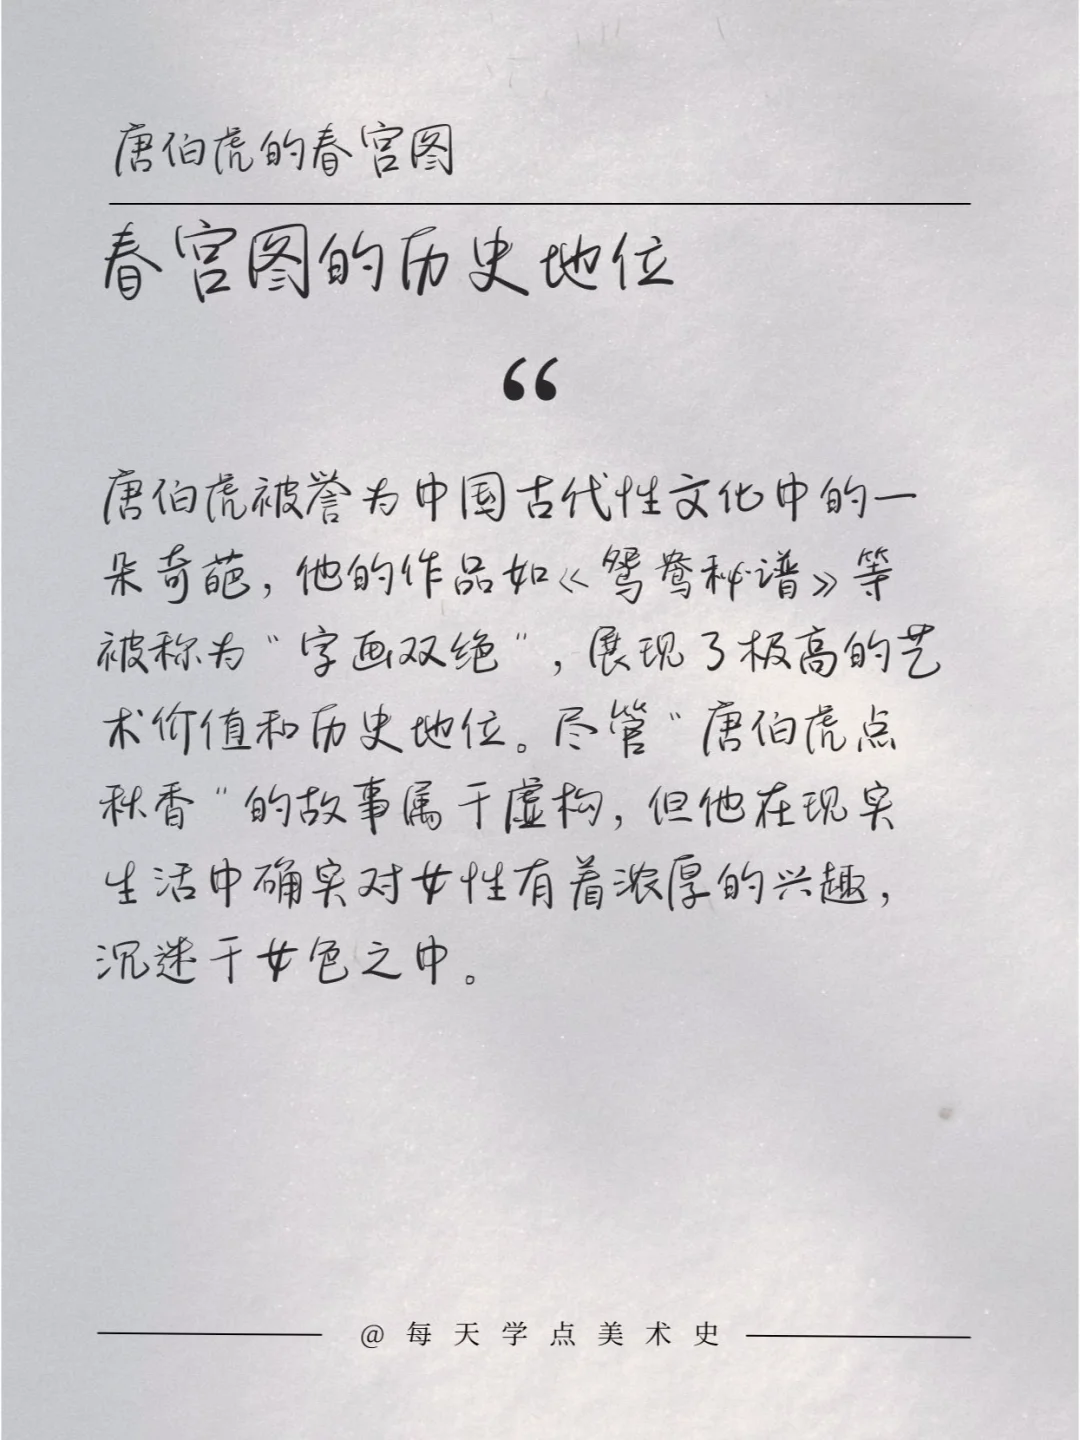 唐伯虎的春宫图
春宫图的历史地位
“
唐伯虎被誉为中国古代性文化中的一
朵奇葩，他的作品如《鸳鸯秘谱》等
被称为“字画双绝”，展现了极高的艺
术价值和历史地位。尽管“唐伯虎点
秋香“的故事属于虚构，但他在现实
生活中确实对女性有着浓厚的兴趣，
沉迷于女色之中。
@每天学点美术史